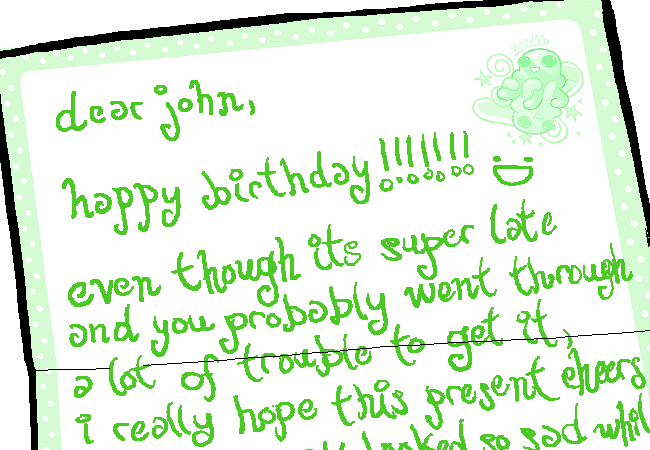 dear john,
happy birthday!!!!!!!
even though its super late
and you probably went through
a lot of trouble to get it,
i really hope this present cheers
looked so sad whil